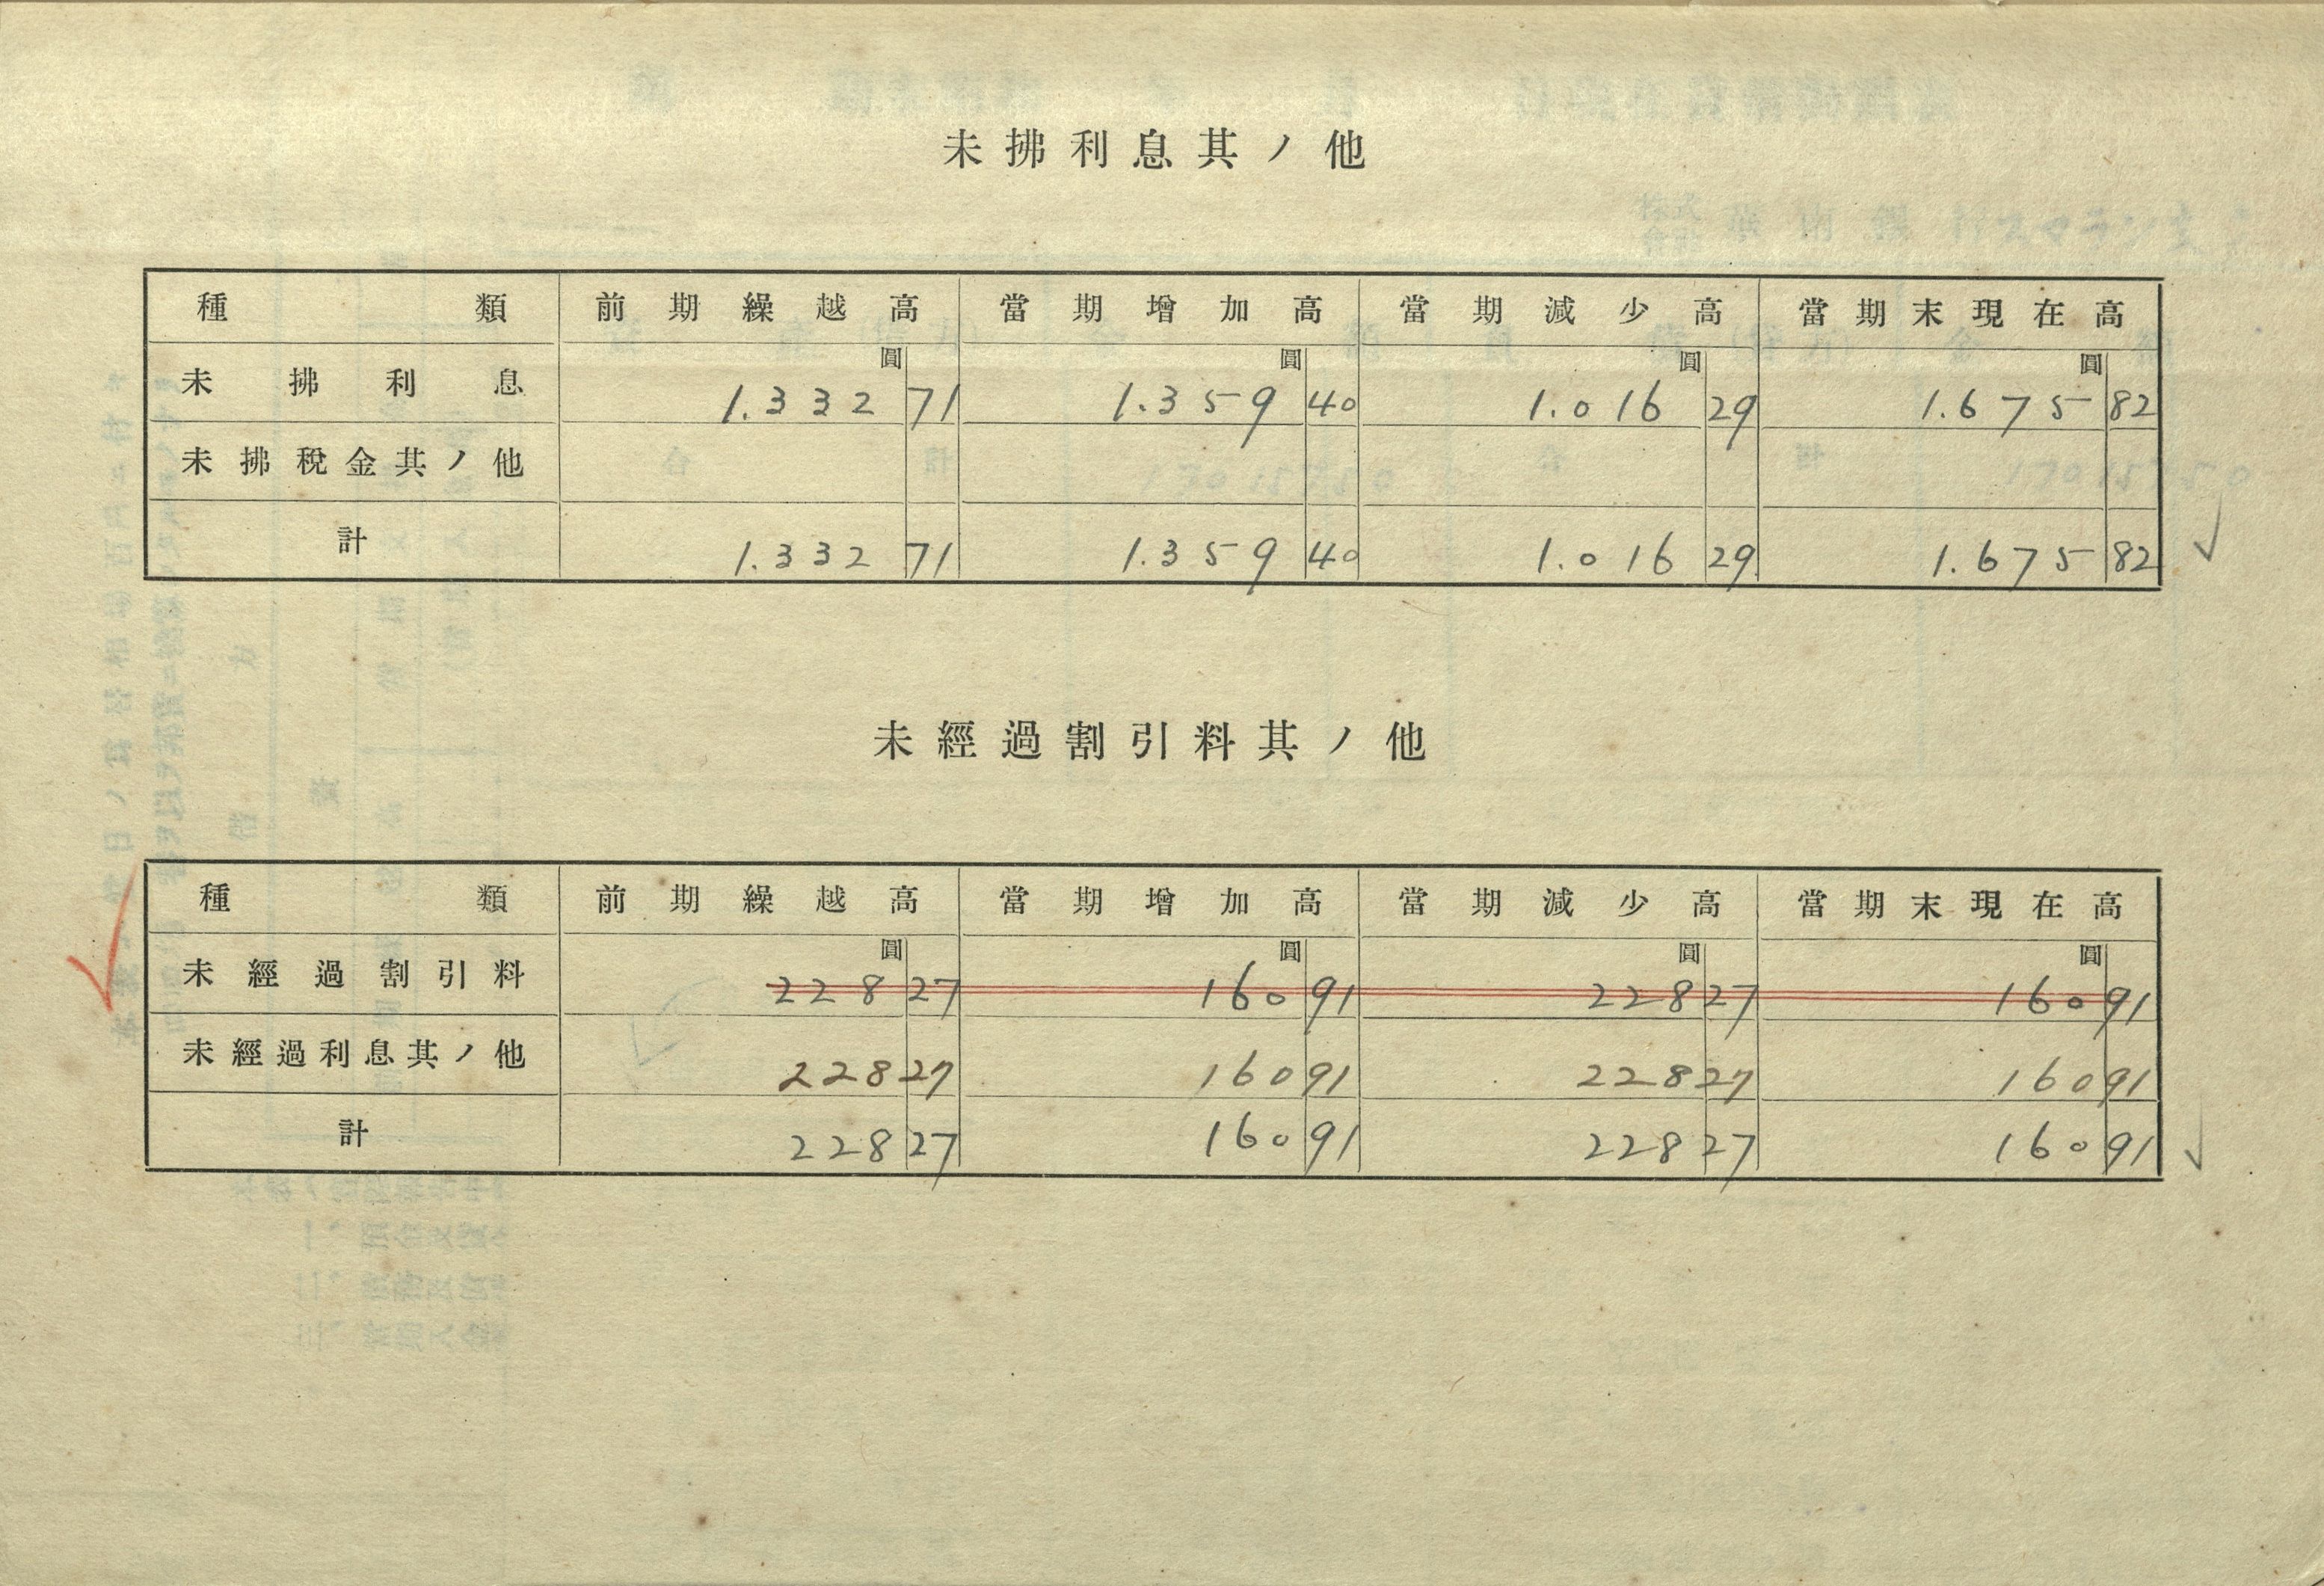 未拂利息其ノ他
種類 前期繰越高 當期增加高 當期減少高 當期末現在高
圓 圓 圓 圓
未拂利息 1.332 71 1.359 40 1.016 29 1.675 82
未拂稅金其ノ他
計 1.332 71 1.359 40 1.016 29 1.675 82
未經過割引料其ノ他
種類 前期繰越高 當期增加高 當期減少高 當期末現在高
圓 圓 圓 圓
未經過割引料 228 27 160 91 228 27 160 91
未經過利息其ノ他 228 27 160 91 228 27 160 91
計 228 27 160 91 228 27 160 91